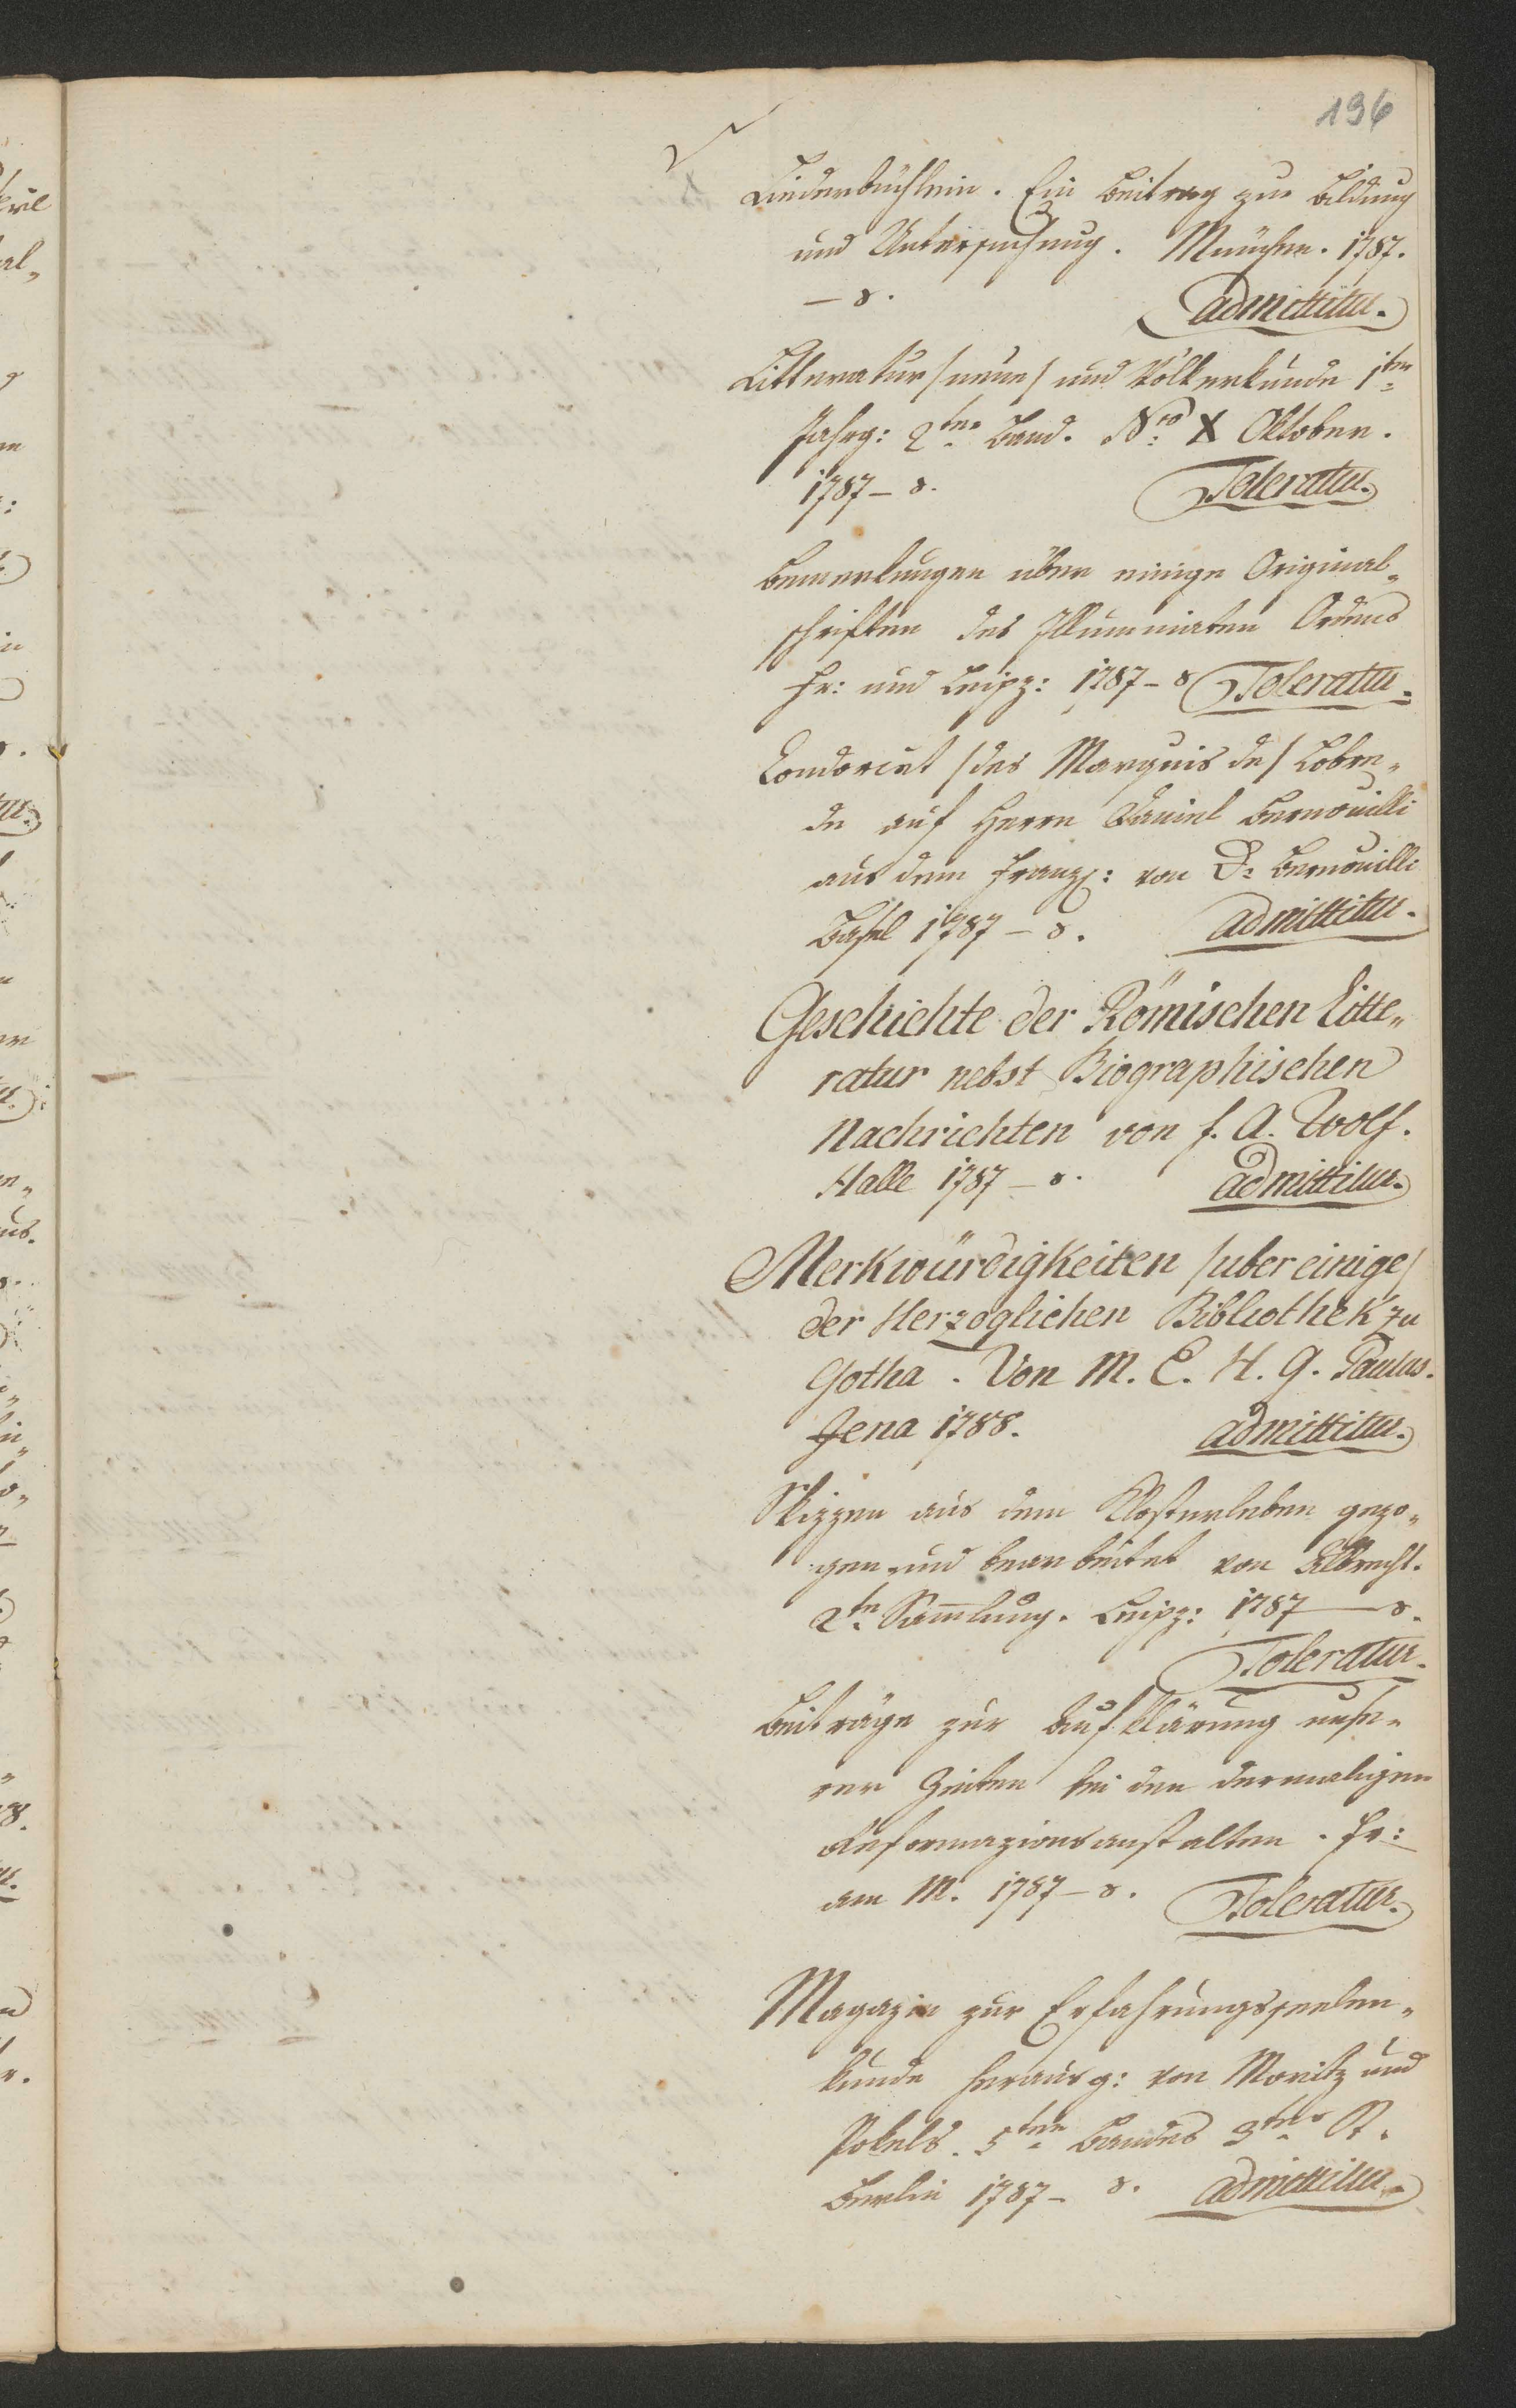 196
Liederbüchlein. Ein Beitrag zur Bildung
und Untersuchung. München. 1787.
— 8. admittitur.
Litteratur /neue/ und Völkerkunde 1ter
Jahrg: 2ter Band. Nro X Oktober.
1787 – 8. Toleratur.
Bemerkungen über einige Original„
schriften des Illuminaten Ordens
Fr: und Leipz: 1787 – 8 Toleratur.
Condorcet /des Marquis de/ Lobre„
de auf Herrn Daniel Bernouilli
aus dem Franz: von D: Bernouilli
Basel 1787 – 8. admittitur.
Geschichte der Römischen Litte„
ratur nebst Biographischen
Nachrichten von f. A. Wolf.
Halle 1787 – 8. admittitur.
Merkwürdigkeiten /uber einige/
der Herzoglichen Bibliothek zu
Gotha. Von M. E. H. G. Paulus.
Jena 1788. admittitur.
Skizzen aus dem Klosterleben gezo„
gen und bearbeitet von Albrecht.
2te Sam̄lung. Leipz: 1787 — 8.
Toleratur.
Beiträge zur Aufklärung unse„
rer Zeiten bei den dermaligen
Reformazionsanstalten. Fr:
am M. 1787 – 8. Toleratur.
Magazin zur Erfahrungsseelen„
kunde herausg: von Moritz und
Pokels. 5ten Bandes 3tes St.
Berlin 1787 – 8. admittitur.